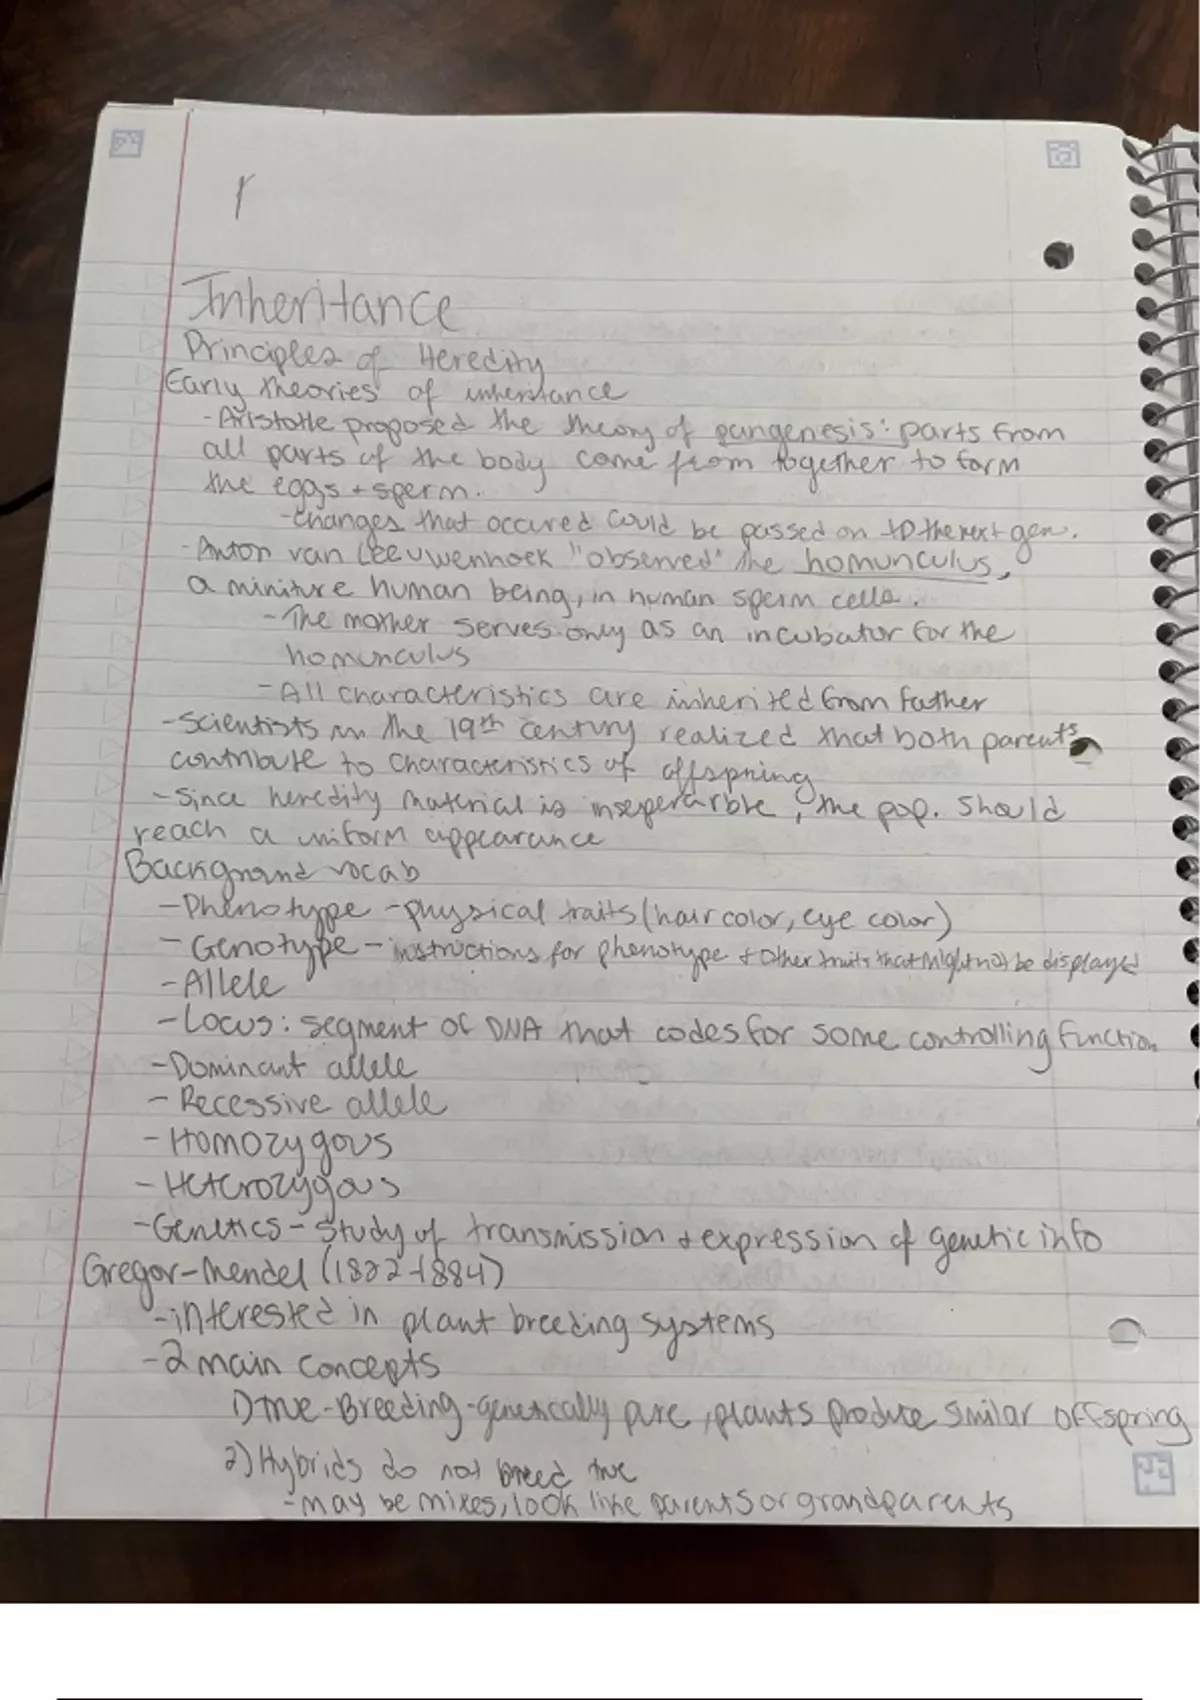 Inheritance
Principles of Heredity
Early theories of inheritance
- Aristotle proposed the theory of pangenesis: parts from
all parts of the body come from together to form
the eggs + sperm.
- changes that occured could be passed on to the next gen.
- Anton van Leeuwenhoek "observed" the homunculus,
a miniture human being, in human sperm cells.
- The mother serves only as an incubator for the
homunculus
- All characteristics are inherited from father
- Scientists in the 19th century realized that both parents
contribute to characteristics of offspring
- Since heredity material is inseperarble, the pop. should
reach a uniform appearance
Background vocab
- Phenotype - physical traits (hair color, eye color)
- Genotype - instructions for phenotype + other traits that might not be displayed
- Allele
- Locus: segment of DNA that codes for some controlling function
- Dominant allele
- Recessive allele
- Homozygous
- Heterozygous
- Genetics - study of transmission + expression of genetic info
Gregor-Mendel (1822-1884)
- interested in plant breeding systems
- 2 main concepts
1) True-Breeding - genetically pure, plants produce similar offspring
2) Hybrids do not breed true
- may be mixes, look like parents or grandparents